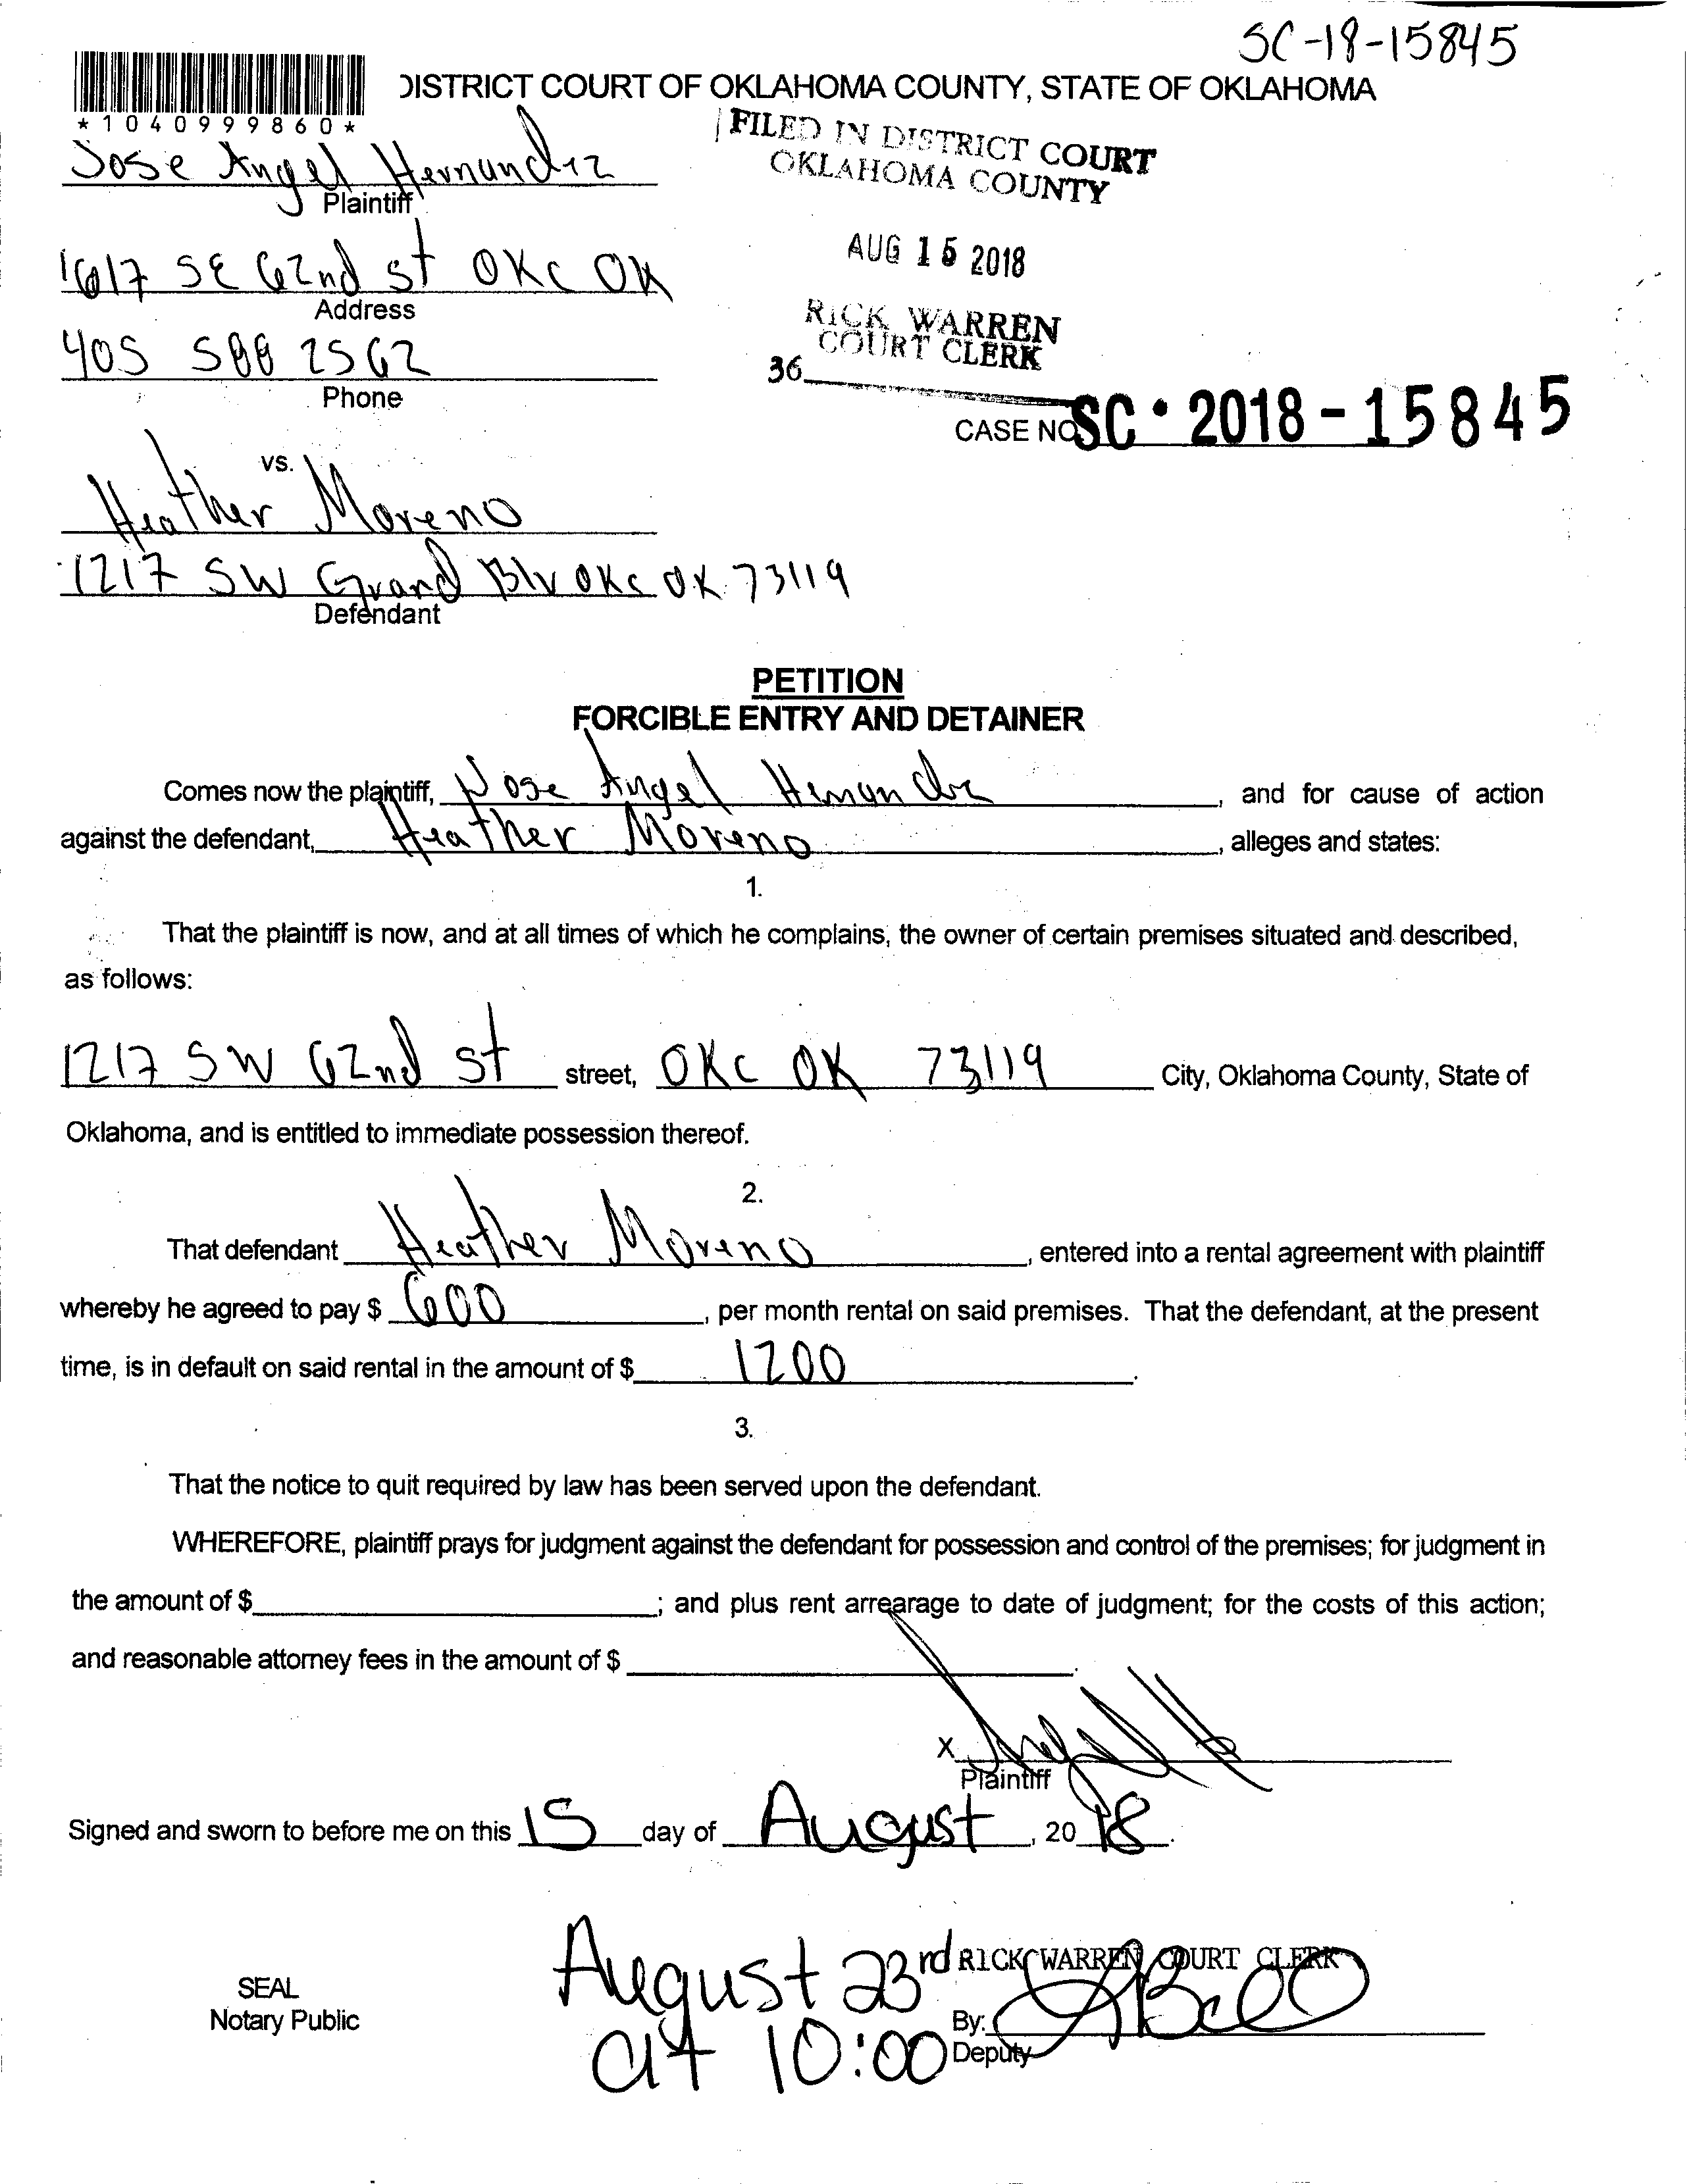 SC-18-15845
DISTRICT COURT OF OKLAHOMA COUNTY, STATE OF OKLAHOMA
*1040999860*
Jose Angel Hernandez
Plaintiff
FILED IN DISTRICT COURT
OKLAHOMA COUNTY
1617 SE 62nd st OKC OK
Address
AUG 15 2018
405 588 2562
Phone
RICK WARREN
COURT CLERK
36
CASE NO. SC • 2018 - 15845
vs.
Heather Moreno
1217 SW Grand Blv OKC OK 73119
Defendant
PETITION
FORCIBLE ENTRY AND DETAINER
Comes now the plaintiff, Jose Angel Hernandez, and for cause of action
against the defendant, Heather Moreno, alleges and states:
1.
That the plaintiff is now, and at all times of which he complains, the owner of certain premises situated and described,
as follows:
1217 SW 62nd st street, OKC OK 73119 City, Oklahoma County, State of
Oklahoma, and is entitled to immediate possession thereof.
2.
That defendant Heather Moreno, entered into a rental agreement with plaintiff
whereby he agreed to pay $ 600, per month rental on said premises. That the defendant, at the present
time, is in default on said rental in the amount of $ 1200.
3.
That the notice to quit required by law has been served upon the defendant.
WHEREFORE, plaintiff prays for judgment against the defendant for possession and control of the premises; for judgment in
the amount of $ ; and plus rent arrearage to date of judgment; for the costs of this action;
and reasonable attorney fees in the amount of $ .
X
Plaintiff
Signed and sworn to before me on this 15 day of August, 2018.
August 23rd
at 10:00
RICK WARREN COURT CLERK
SEAL
Notary Public
By:
Deputy